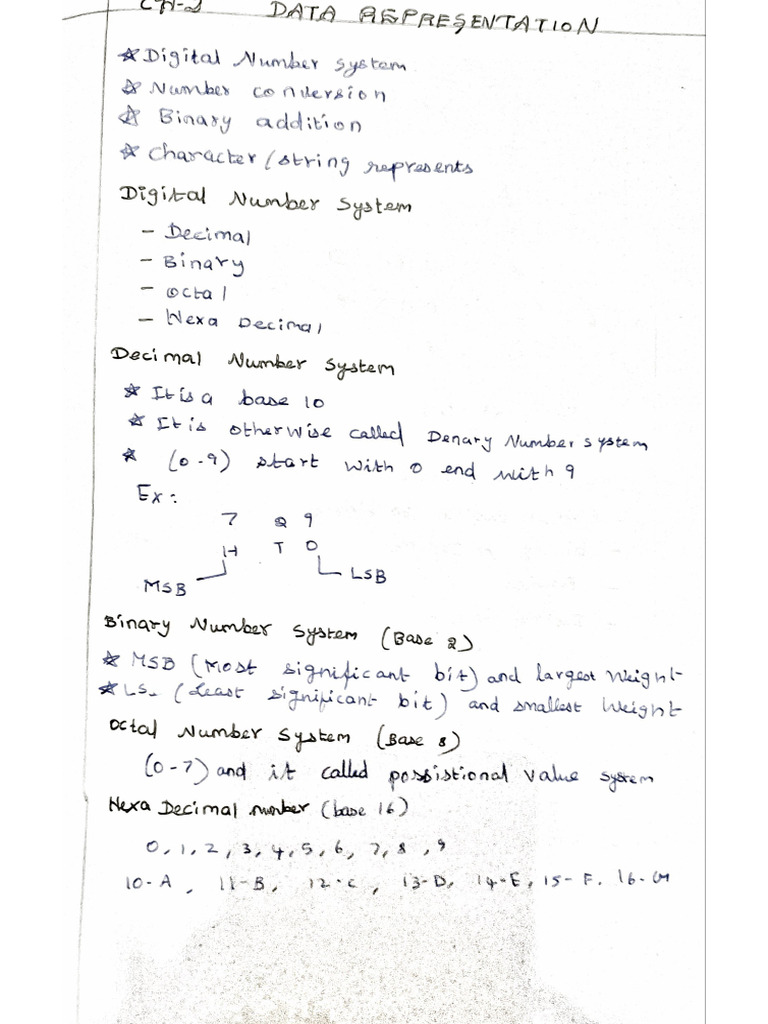 CH-2 DATA REPRESENTATION
* Digital Number system
* Number conversion
* Binary addition
* Character/string represents
Digital Number System
- Decimal
- Binary
- Octal
- Hexa Decimal
Decimal Number System
* It is a base 10
* It is otherwise called Denary Number system
* (0-9) start with 0 end with 9
Ex:
7 2 9
H T O
MSB LSB
Binary Number System (Base 2)
* MSB (Most significant bit) and largest weight
* LS. (Least significant bit) and smallest weight
Octal Number System (Base 8)
(0-7) and it called possistional value system
Hexa Decimal number (base 16)
0, 1, 2, 3, 4, 5, 6, 7, 8, 9
10-A, 11-B, 12-C, 13-D, 14-E, 15-F. 16-G